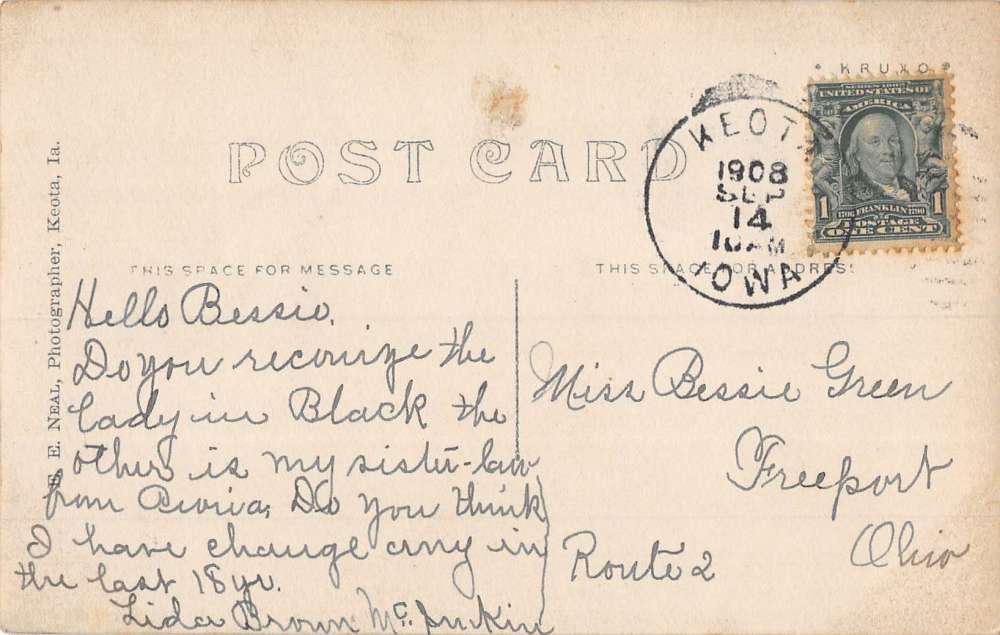 * KRUXO *
POST CARD
KEOTA
1908
SEP
14
10 AM
IOWA
SERIES 1902
UNITED STATES OF
AMERICA
1 1706 FRANKLIN 1790 1
POSTAGE
ONE CENT
E. NEAL, Photographer, Keota, Ia.
THIS SPACE FOR MESSAGE
THIS SPACE FOR ADDRESS
Hello Bessie.
Do you reconize the
lady in Black the
other is my sister-law
from Do you think
I have change any in
the last 18 yr.
Lida Brown McJunkin
Miss Bessie Green
Freeport
Ohio
Route 2